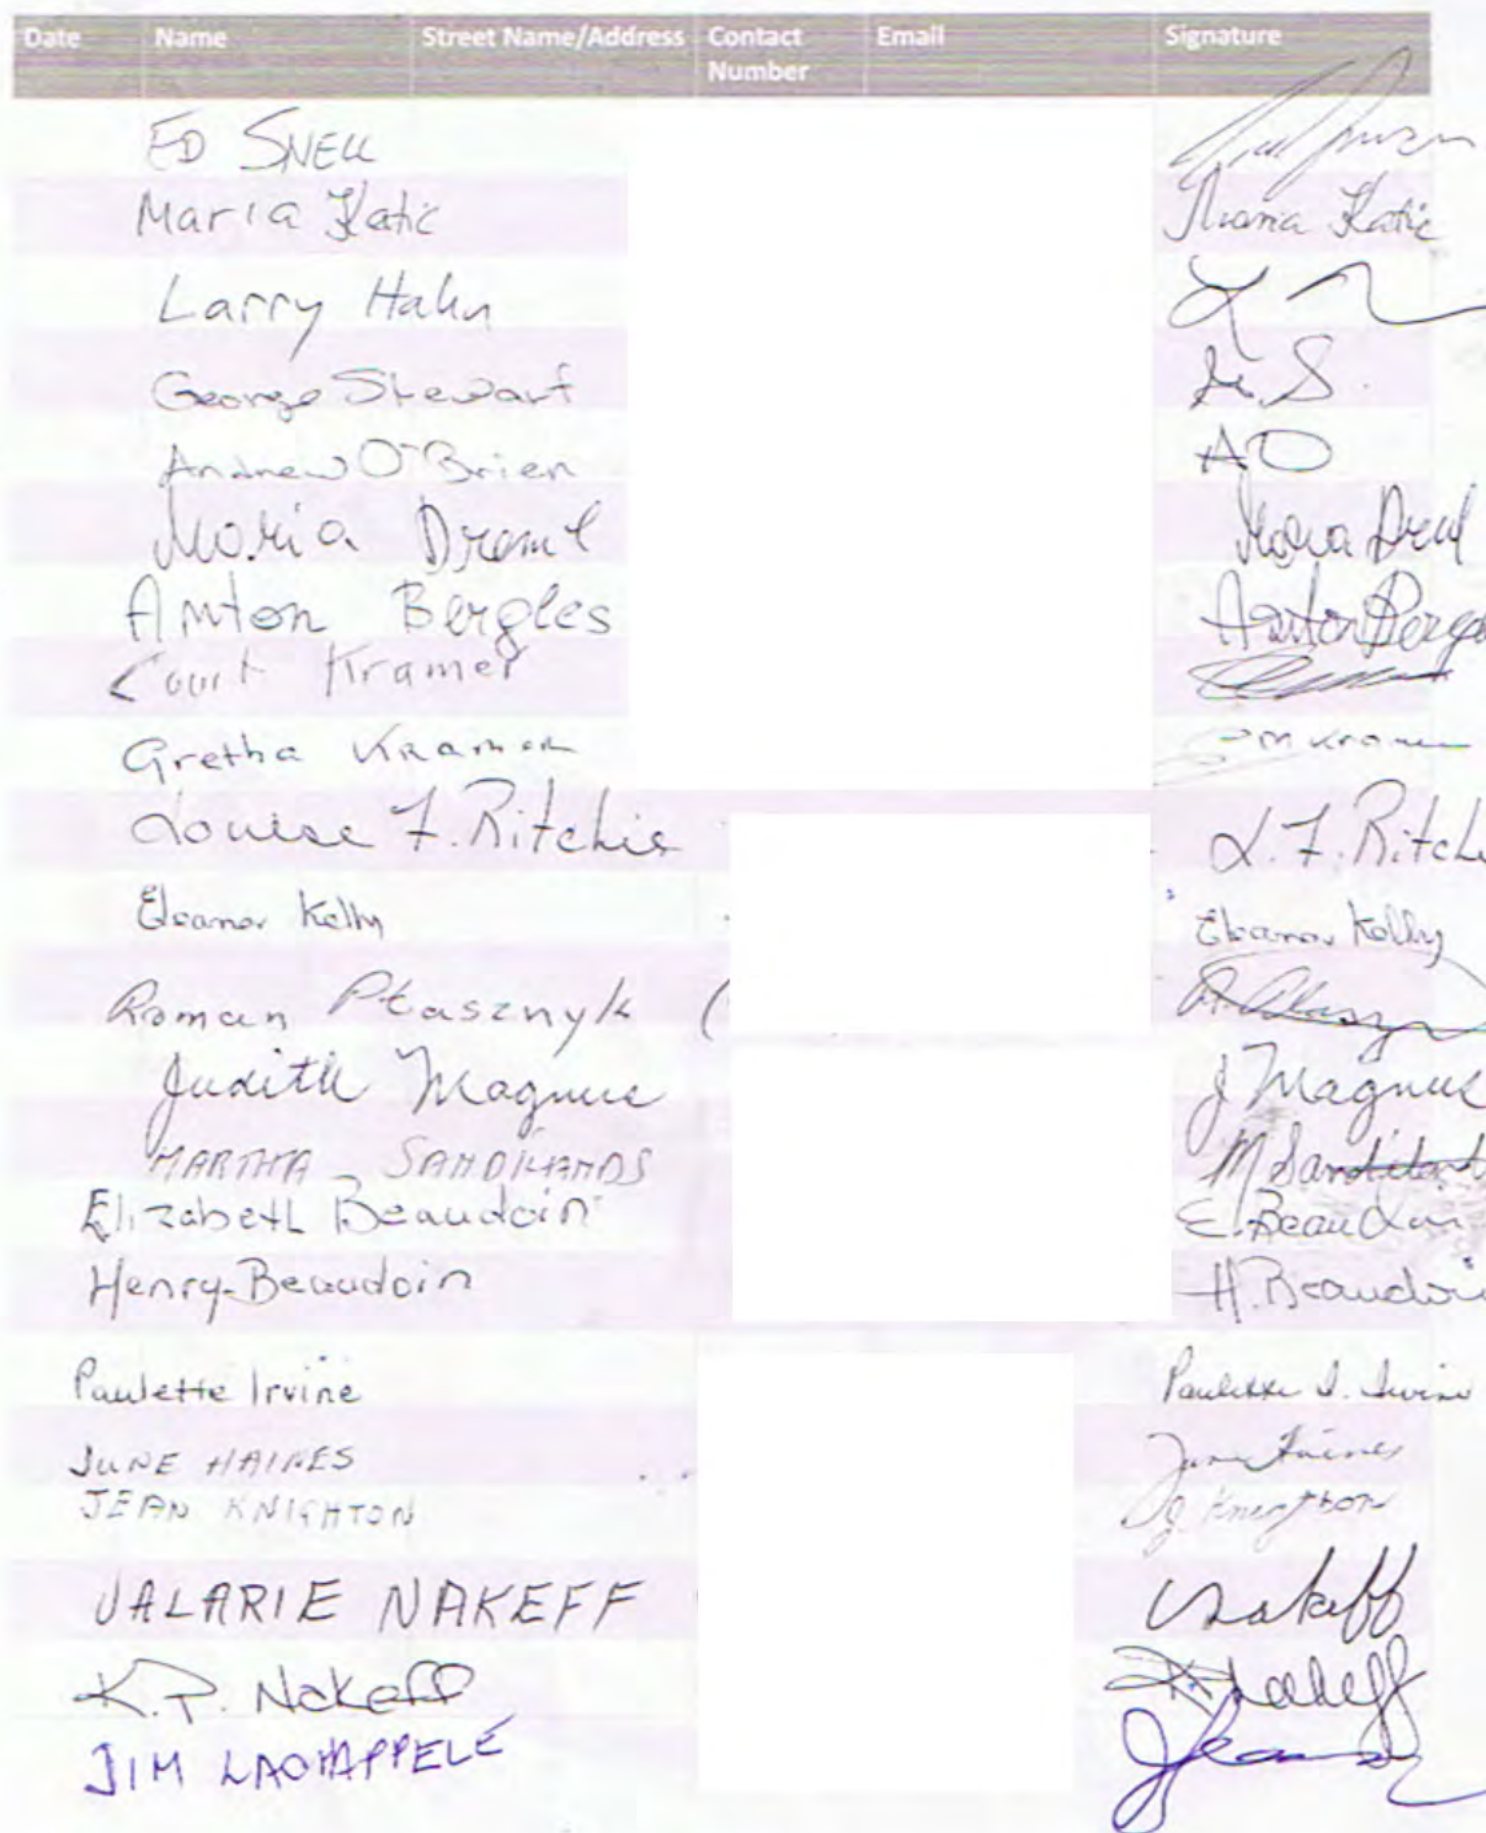 Date Name Street Name/Address Contact Number Email Signature
ED SNELL
Maria Katic Maria Katic
Larry Hahn
George Stewart G.S.
Andrew O'Brien AO
Maria
Anton Bergles Anton
Court Kramer
Gretha Kramer
Louise F. Ritchie L. F. Ritchie
Eleanor Kelly Eleanor Kelly
Roman Ptasznyk (
Judith Magnus J Magnus
MARTHA SANDILANDS M Sandilands
Elizabeth Beaudoin E. Beaudoin
Henry-Beaudoin H. Beaudoin
Paulette Irvine Paulette I. Irvine
JUNE HAINES June Haines
JEAN KNIGHTON J. Knighton
VALARIE NAKEFF V Nakeff
K.P. Nakeff K Nakeff
JIM LACHAPPELE